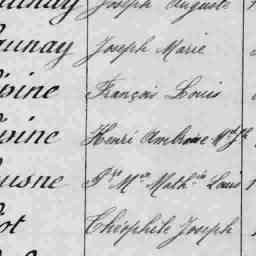 aunay Joseph Auguste
aunay Joseph Marie
épine François Louis
épine Henri Ambroise Mel Jh
usne Jn Mie Mathin Louis
ot Théophile Joseph